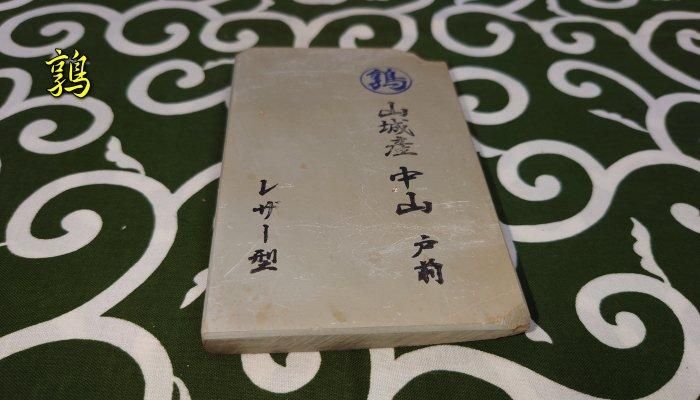 鶉
鶉
山城産 中山 戸前
レザー型